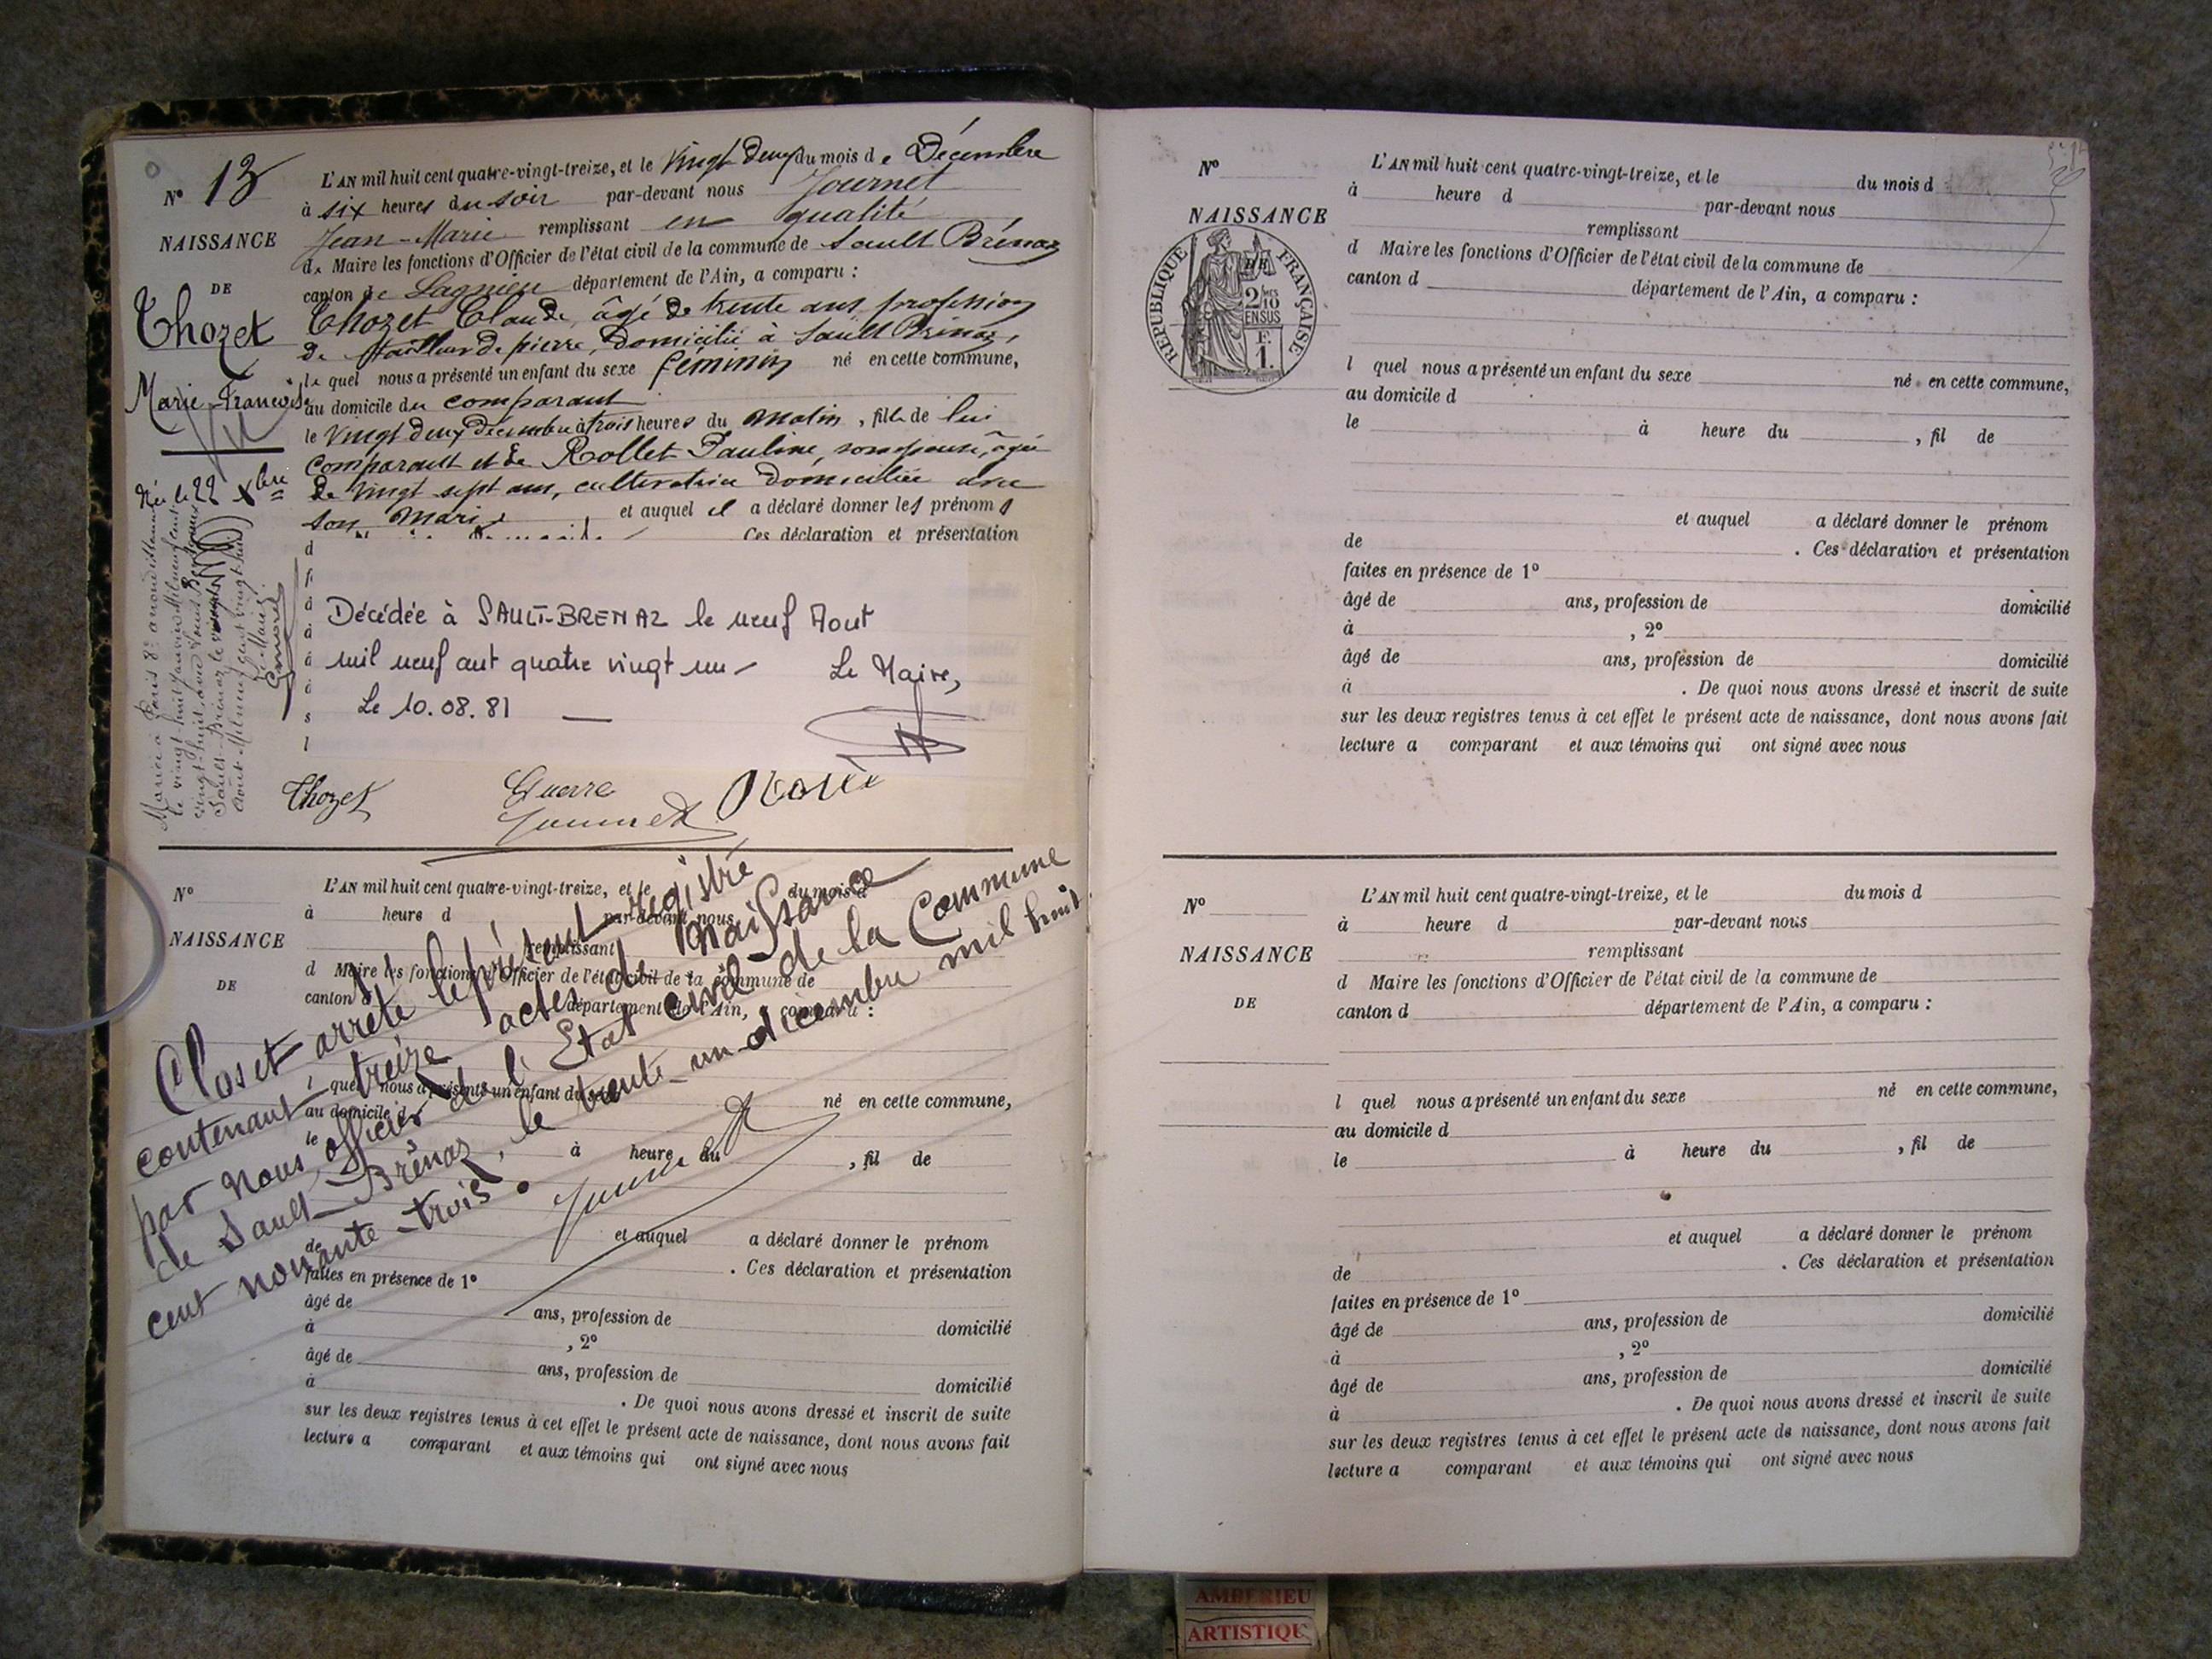 N° 13
NAISSANCE
DE
Thozet
Marie-Françoise
Née le 22 Xbre
Marié à Paris 8e arrondissement
le vingt-huit janvier Mil neuf cent
vingt-huit avec
Sault-Brénaz le
août Mil neuf cent vingt-huit
Le Maire
L'AN mil huit cent quatre-vingt-treize, et le vingt deux du mois de Décembre
à six heures du soir par-devant nous Journet
Jean-Marie remplissant en qualité
de Maire les fonctions d'Officier de l'état civil de la commune de Sault Brénaz
canton de Lagnieu département de l'Ain, a comparu :
Thozet Claude, âgé de trente ans profession
de tailleur de pierre, domicilié à Sault Brénaz,
le quel nous a présenté un enfant du sexe féminin né en cette commune,
au domicile du comparant
le vingt deux décembre à trois heures du matin, fille de lui
comparant et de Rollet Pauline, son épouse, âgée
de vingt sept ans, cultivatrice domiciliée avec
son mari et auquel il a déclaré donner les prénoms
Ces déclaration et présentation
d
f
à
à
à
s
l
Décédée à SAULT-BRENAZ le neuf Aout
mil neuf cent quatre vingt un
Le Maire,
Le 10.08.81
Thozet
Guerre
Journet
N°
NAISSANCE
DE
L'AN mil huit cent quatre-vingt-treize, et le du mois d
à heure d par-devant nous
remplissant
d Maire les fonctions d'Officier de l'état civil de la commune de
canton d département de l'Ain, a comparu :
l quel nous a présenté un enfant du sexe né en cette commune,
au domicile d
le à heure du , fil de
et auquel a déclaré donner le prénom
de . Ces déclaration et présentation
faites en présence de 1°
âgé de ans, profession de domicilié
à , 2°
âgé de ans, profession de domicilié
à . De quoi nous avons dressé et inscrit de suite
sur les deux registres tenus à cet effet le présent acte de naissance, dont nous avons fait
lecture a comparant et aux témoins qui ont signé avec nous
Clos et arrêté le présent registre
contenant treize actes de naissance
par nous, officier de l'Etat civil de la Commune
de Sault-Brénaz, le trente-un décembre mil huit
cent nonante-trois.
Journet
N°
NAISSANCE
RÉPUBLIQUE FRANÇAISE
2/10 EN SUS
F. 1.
L'AN mil huit cent quatre-vingt-treize, et le du mois d
à heure d par-devant nous
remplissant
d Maire les fonctions d'Officier de l'état civil de la commune de
canton d département de l'Ain, a comparu :
l quel nous a présenté un enfant du sexe né en cette commune,
au domicile d
le à heure du , fil de
et auquel a déclaré donner le prénom
de . Ces déclaration et présentation
faites en présence de 1°
âgé de ans, profession de domicilié
à , 2°
âgé de ans, profession de domicilié
à . De quoi nous avons dressé et inscrit de suite
sur les deux registres tenus à cet effet le présent acte de naissance, dont nous avons fait
lecture a comparant et aux témoins qui ont signé avec nous
N°
NAISSANCE
DE
L'AN mil huit cent quatre-vingt-treize, et le du mois d
à heure d par-devant nous
remplissant
d Maire les fonctions d'Officier de l'état civil de la commune de
canton d département de l'Ain, a comparu :
l quel nous a présenté un enfant du sexe né en cette commune,
au domicile d
le à heure du , fil de
et auquel a déclaré donner le prénom
de . Ces déclaration et présentation
faites en présence de 1°
âgé de ans, profession de domicilié
à , 2°
âgé de ans, profession de domicilié
à . De quoi nous avons dressé et inscrit de suite
sur les deux registres tenus à cet effet le présent acte de naissance, dont nous avons fait
lecture a comparant et aux témoins qui ont signé avec nous
AMBERIEU
ARTISTIQU